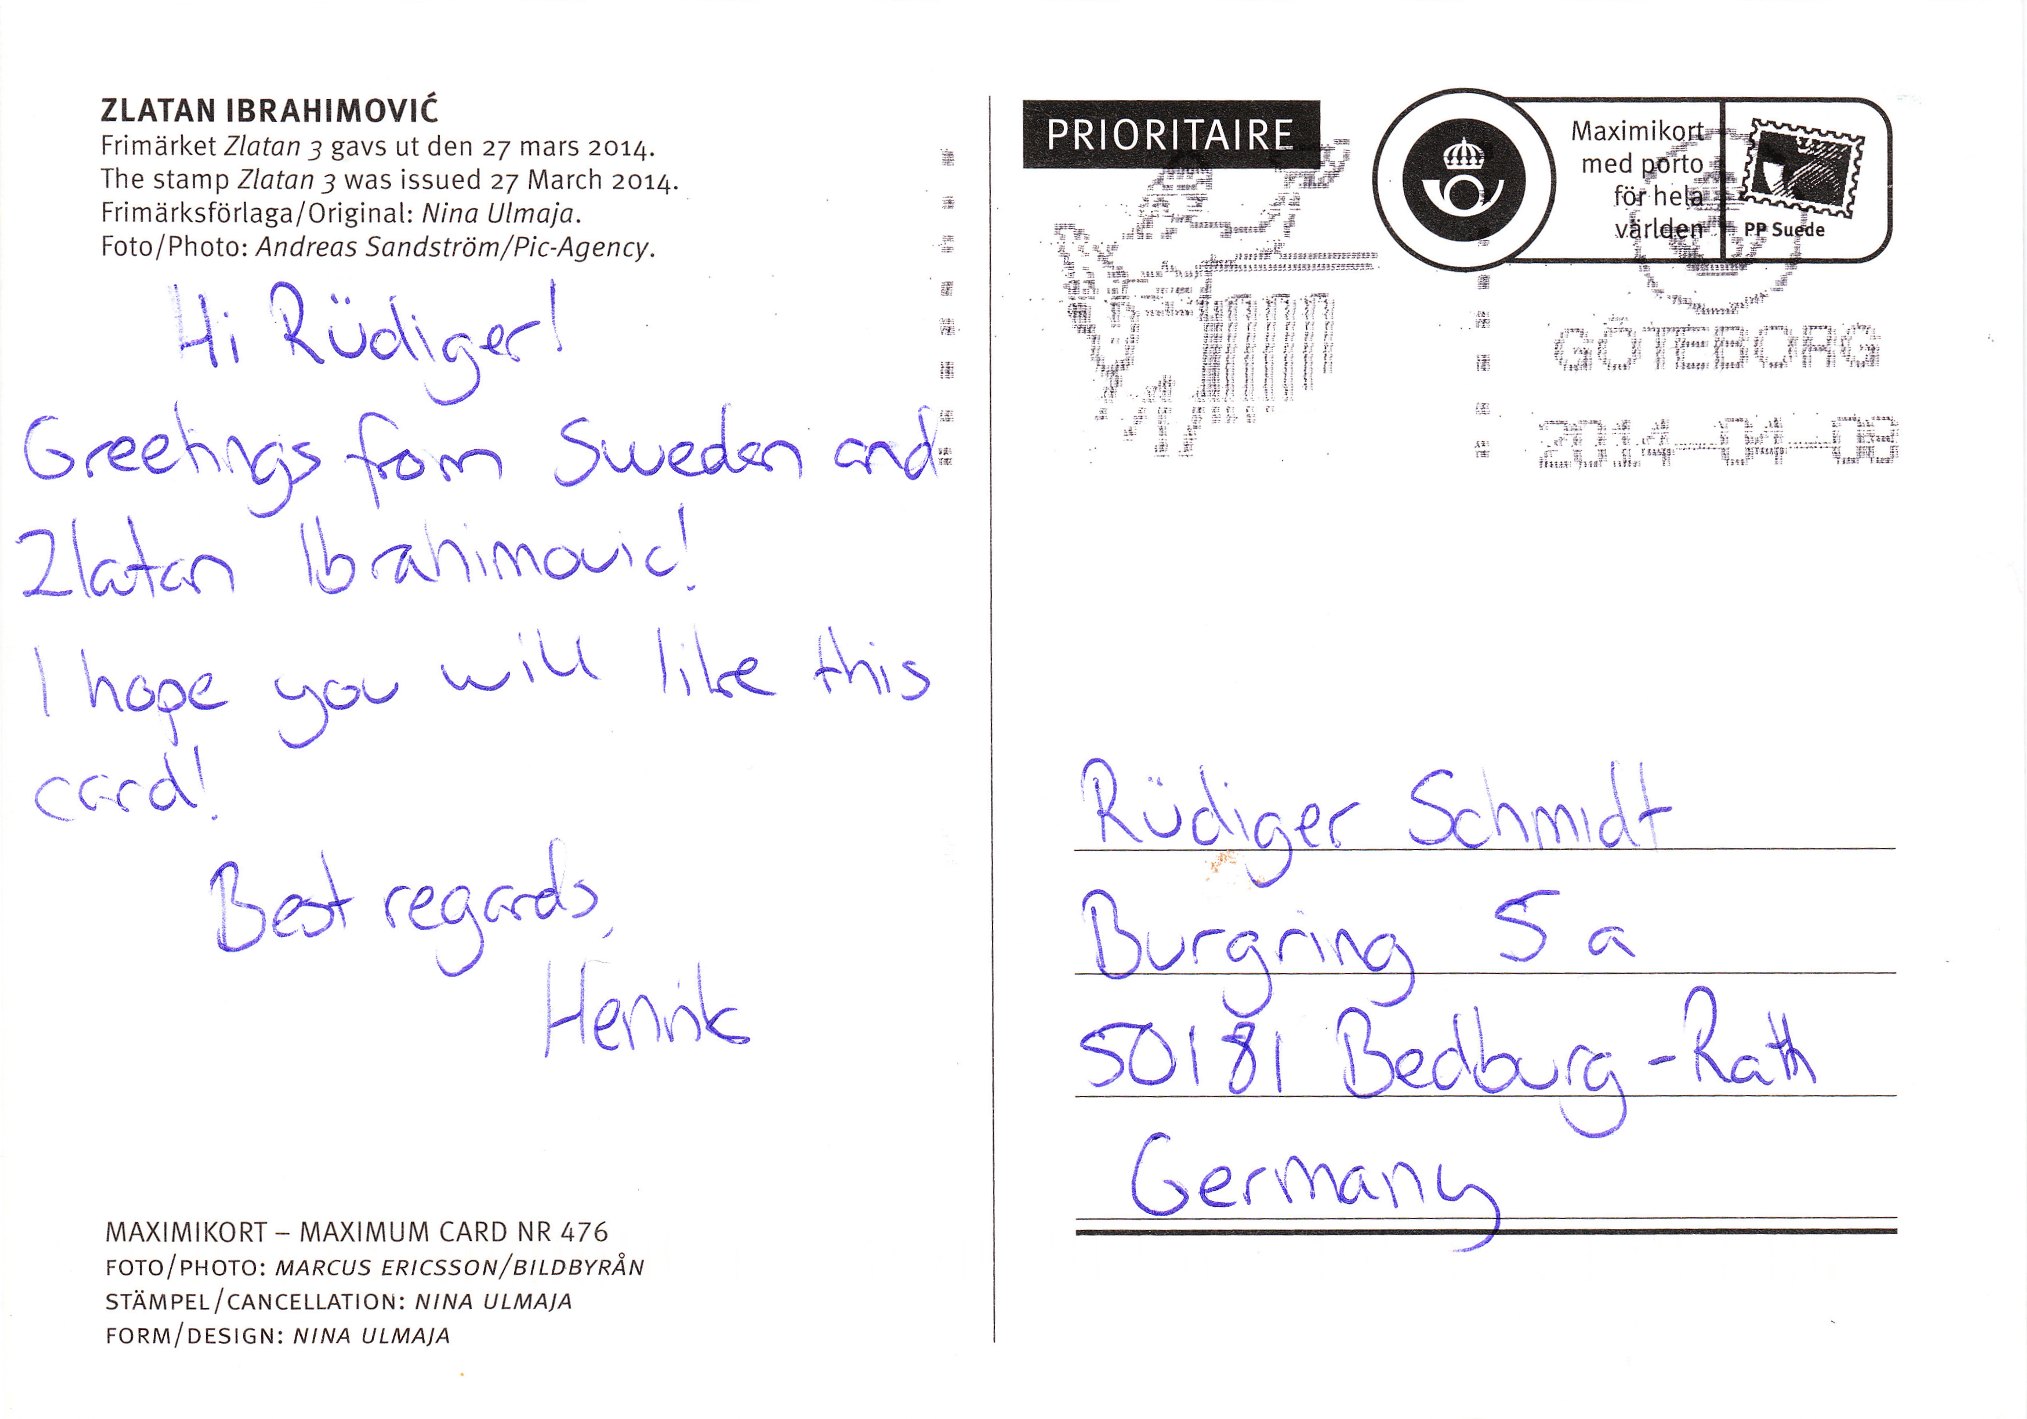 ZLATAN IBRAHIMOVIĆ
Frimärket Zlatan 3 gavs ut den 27 mars 2014.
The stamp Zlatan 3 was issued 27 March 2014.
Frimärksförlaga/Original: Nina Ulmaja.
Foto/Photo: Andreas Sandström/Pic-Agency.
Hi Rüdiger!
Greetings from Sweden and
Zlatan Ibrahimovic!
I hope you will like this
card!
Best regards,
Henrik
MAXIMIKORT – MAXIMUM CARD NR 476
FOTO/PHOTO: MARCUS ERICSSON/BILDBYRÅN
STÄMPEL/CANCELLATION: NINA ULMAJA
FORM/DESIGN: NINA ULMAJA
PRIORITAIRE
Maximikort
med porto
för hela
världen
PP Suede
GÖTEBORG
2014-04-08
Rüdiger Schmidt
Burgring 5 a
50181 Bedburg-Rath
Germany